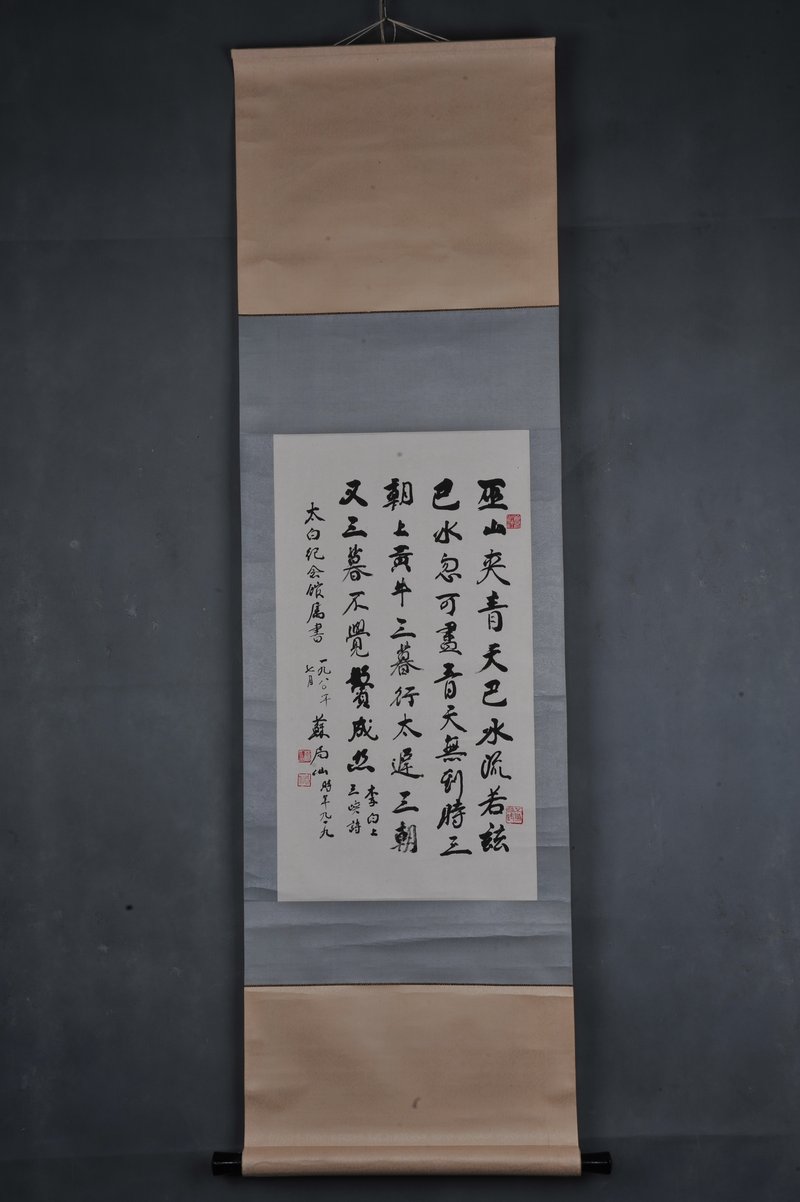 巫山夾青天巴水流若兹
巴水忽可盡青天無到時三
朝上黄牛三暮行太遲三朝
又三暮不覺鬢成丝
李白上
三峡詩
太白纪念館属書
一九八〇年
七月
蘇局仙時年九十九